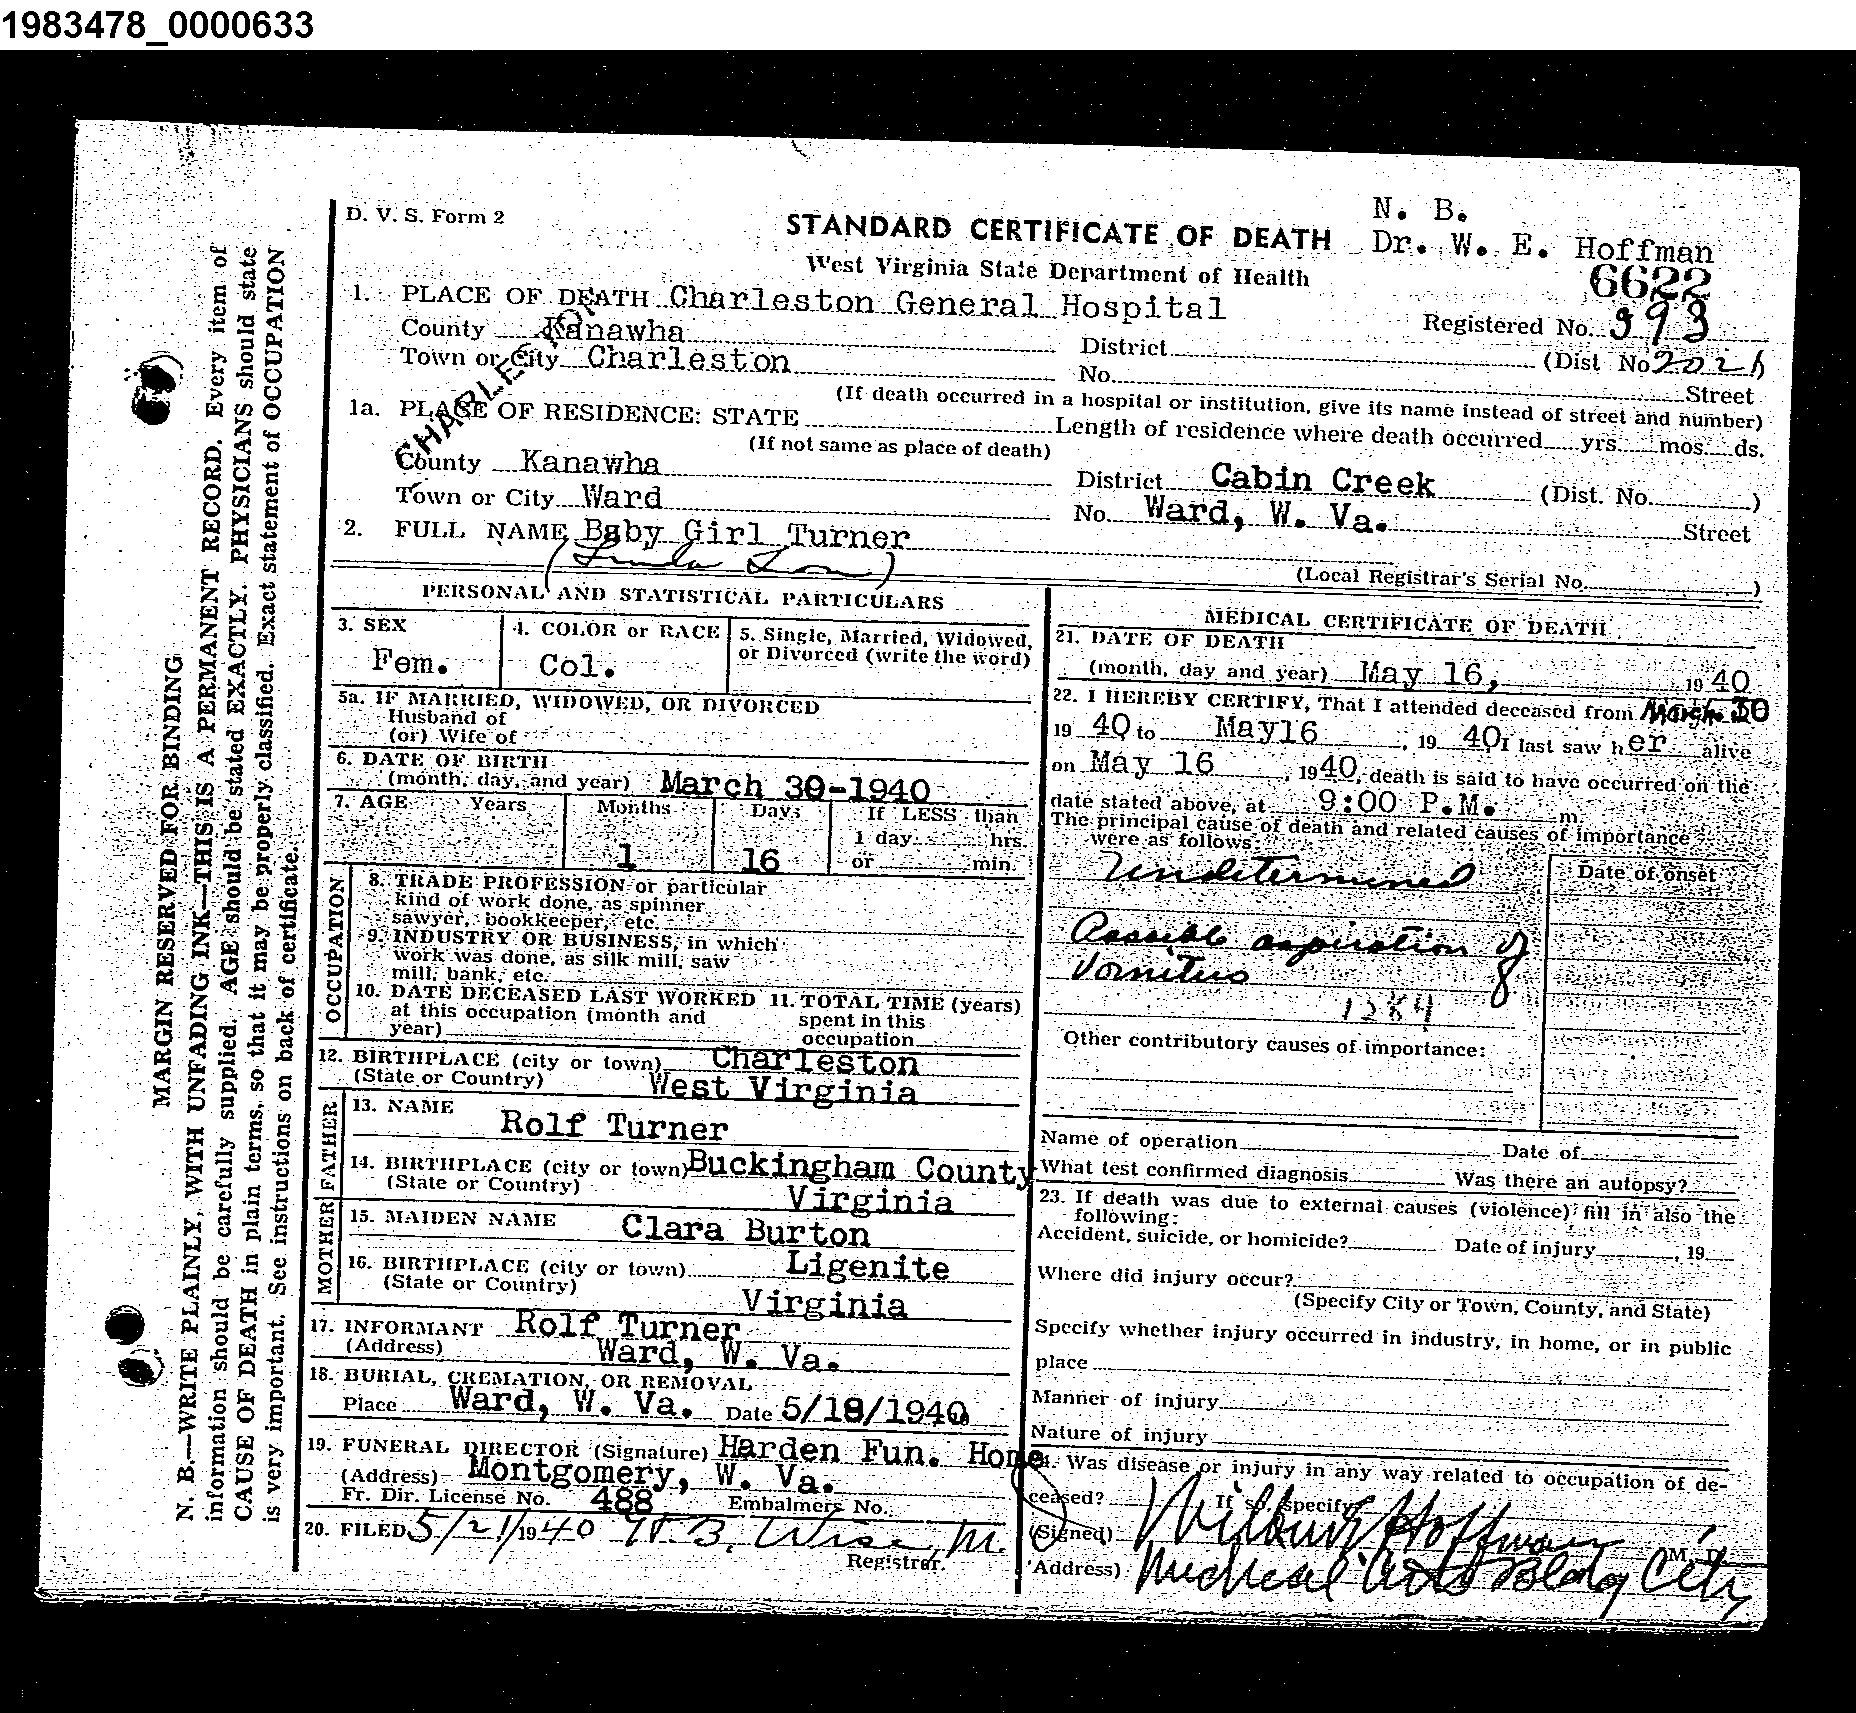 1983478_0000633
D. V. S. Form 2
N. B.
STANDARD CERTIFICATE OF DEATH Dr. W. E. Hoffman
West Virginia State Department of Health
6622
1. PLACE OF DEATH Charleston General Hospital
Registered No. 393
County Kanawha
District (Dist No
Town or City Charleston
No. Street
CHARLESTON
(If death occurred in a hospital or institution, give its name instead of street and number)
1a. PLACE OF RESIDENCE: STATE Length of residence where death occurred yrs. mos. ds.
(If not same as place of death)
County Kanawha District Cabin Creek (Dist. No. )
Town or City Ward No. Ward, W. Va. Street
2. FULL NAME Baby Girl Turner
(Linda )
(Local Registrar's Serial No. )
PERSONAL AND STATISTICAL PARTICULARS
3. SEX
Fem.
4. COLOR or RACE
Col.
5. Single, Married, Widowed,
or Divorced (write the word)
5a. IF MARRIED, WIDOWED, OR DIVORCED
Husband of
(or) Wife of
6. DATE OF BIRTH
(month, day, and year) March 30-1940
7. AGE Years Months Days If LESS than
1 day hrs.
1 16 or min.
OCCUPATION
8. TRADE PROFESSION or particular
kind of work done, as spinner
sawyer, bookkeeper, etc.
9. INDUSTRY OR BUSINESS, in which
work was done, as silk mill, saw
mill, bank, etc.
10. DATE DECEASED LAST WORKED
at this occupation (month and
year)
11. TOTAL TIME (years)
spent in this
occupation
12. BIRTHPLACE (city or town) Charleston
(State or Country) West Virginia
FATHER
13. NAME
Rolf Turner
14. BIRTHPLACE (city or town) Buckingham County
(State or Country) Virginia
MOTHER
15. MAIDEN NAME Clara Burton
16. BIRTHPLACE (city or town) Ligenite
(State or Country) Virginia
17. INFORMANT Rolf Turner
(Address) Ward, W. Va.
18. BURIAL, CREMATION, OR REMOVAL
Place Ward, W. Va. Date 5/18/1940
19. FUNERAL DIRECTOR (Signature) Harden Fun. Home
(Address) Montgomery, W. Va.
Fr. Dir. License No. 488 Embalmers No.
20. FILED 5/21/1940 Wise, M.
Registrar.
MEDICAL CERTIFICATE OF DEATH
21. DATE OF DEATH
(month, day and year) May 16, 1940
22. I HEREBY CERTIFY, That I attended deceased from March 30
19 40 to May16, 19 40 I last saw her alive
on May 16, 1940, death is said to have occurred on the
date stated above, at 9:00 P.M. m.
The principal cause of death and related causes of importance
were as follows:
Date of onset
Undetermined
Possible aspiration of
vomitus
Other contributory causes of importance:
Name of operation Date of
What test confirmed diagnosis Was there an autopsy?
23. If death was due to external causes (violence) fill in also the
following:
Accident, suicide, or homicide? Date of injury , 19
Where did injury occur?
(Specify City or Town, County, and State)
Specify whether injury occurred in industry, in home, or in public
place
Manner of injury
Nature of injury
24. Was disease or injury in any way related to occupation of de-
ceased? If so, specify
(Signed) Wilbur Hoffman M. D.
(Address) Medical Arts Bldg City
MARGIN RESERVED FOR BINDING
N. B.—WRITE PLAINLY, WITH UNFADING INK—THIS IS A PERMANENT RECORD. Every item of
information should be carefully supplied. AGE should be stated EXACTLY. PHYSICIANS should state
CAUSE OF DEATH in plain terms, so that it may be properly classified. Exact statement of OCCUPATION
is very important. See instructions on back of certificate.